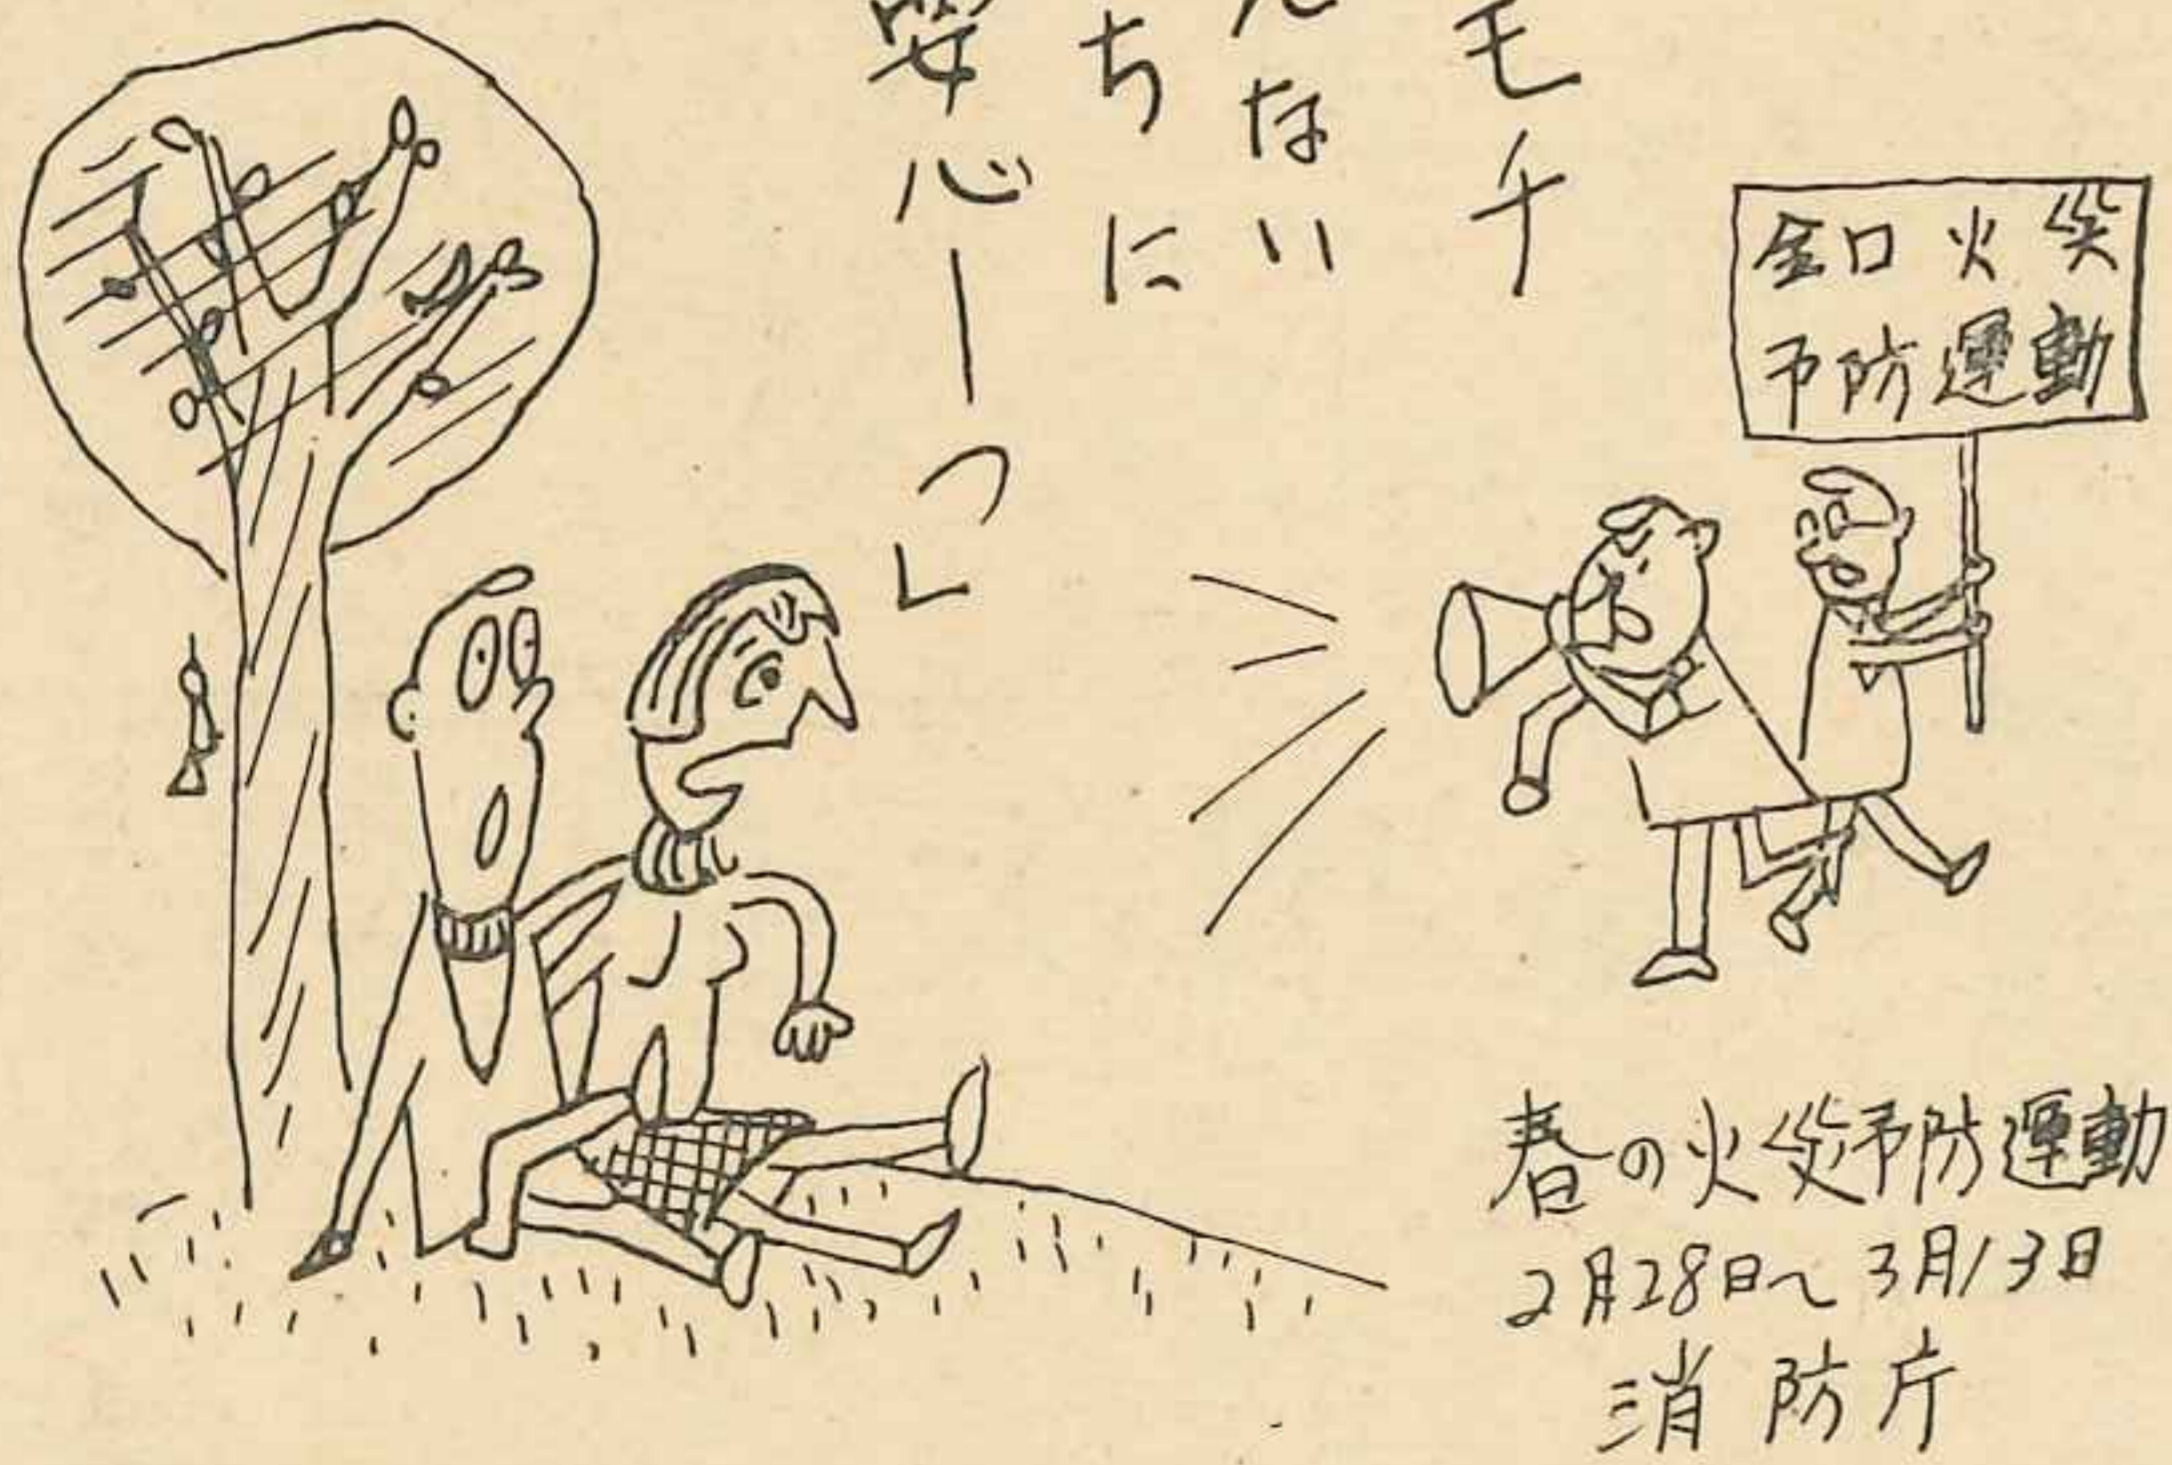 モチ
んない
ちに
安心一つ」
全口火災
予防運動
春の火災予防運動
2月28日〜3月13日
消防庁